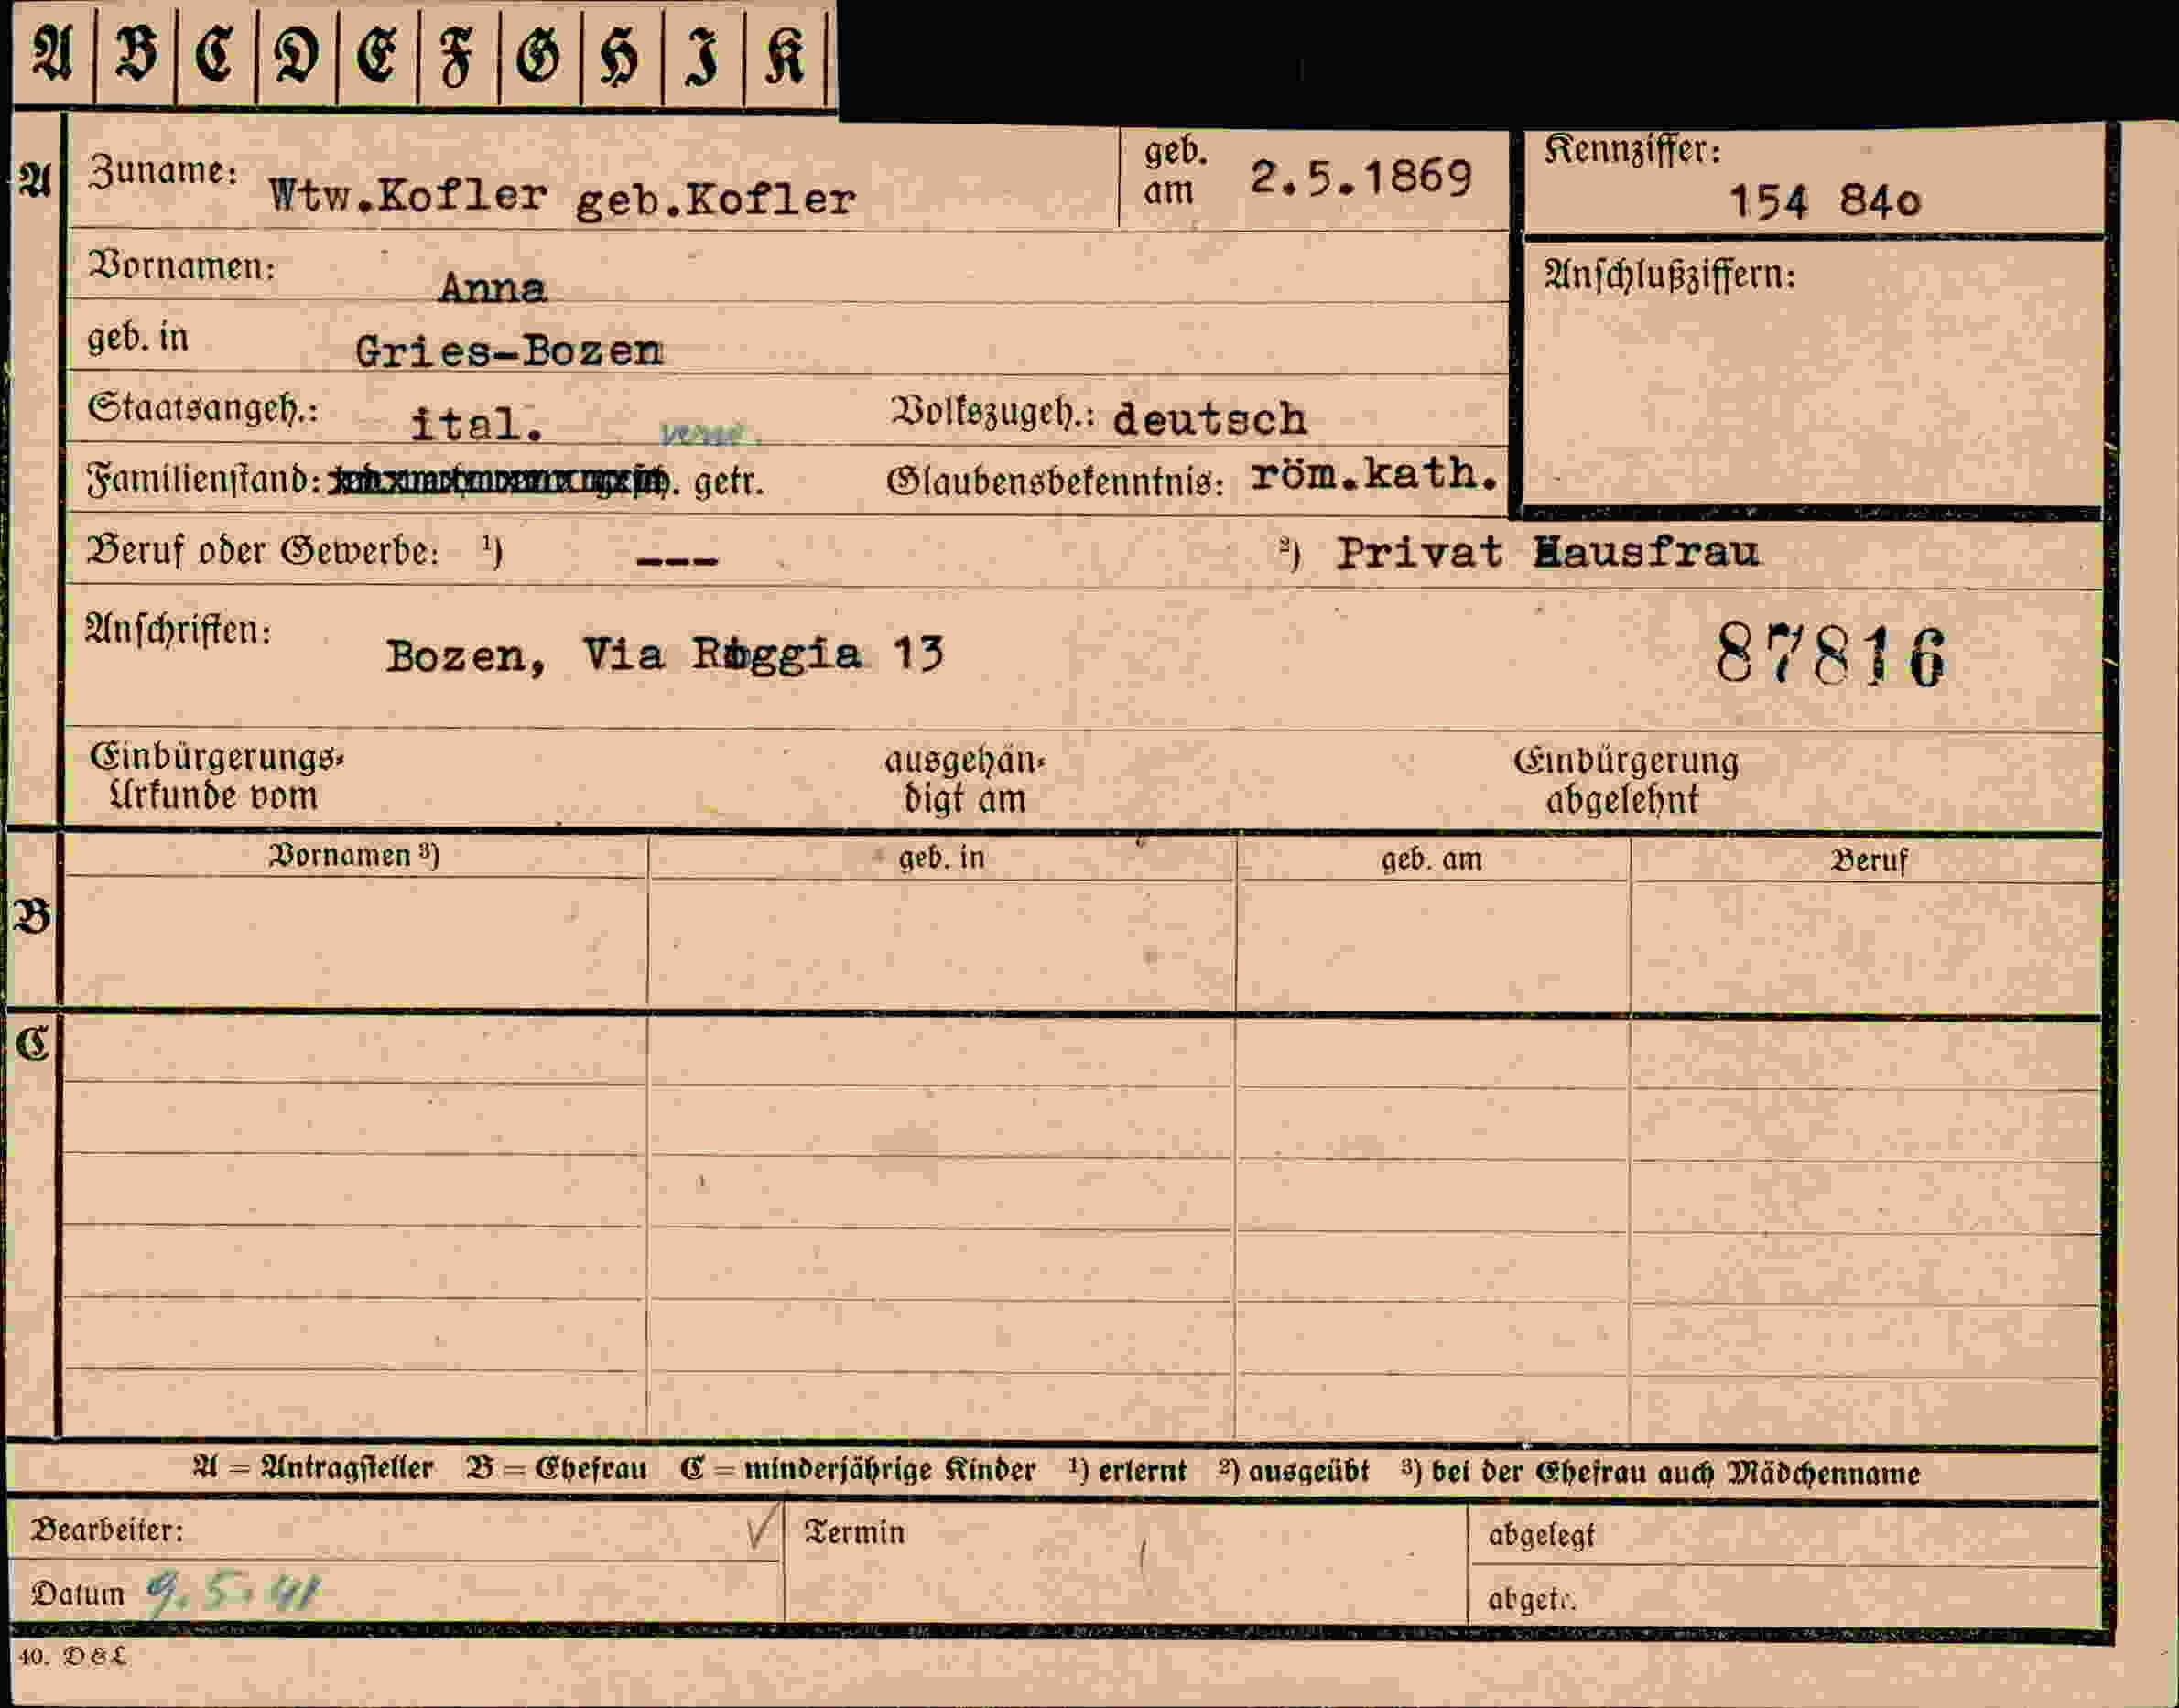 A B C D E F G H I K
A Zuname: Wtw.Kofler geb.Kofler geb. am 2.5.1869 Kennziffer: 154 84o
Vornamen: Anna Anschlußziffern:
geb. in Gries-Bozen
Staatsangeh.: ital. Volkszugeh.: deutsch
Familienstand: getr. Glaubensbekenntnis: röm.kath.
Beruf oder Gewerbe: ¹) --- ²) Privat Hausfrau
Anschriften: Bozen, Via Roggia 13 87816
Einbürgerungs- ausgehän- Einbürgerung
Urkunde vom digt am abgelehnt
Vornamen ³) geb. in geb. am Beruf
B
C
A = Antragsteller B = Ehefrau C = minderjährige Kinder ¹) erlernt ²) ausgeübt ³) bei der Ehefrau auch Mädchenname
Bearbeiter: Termin abgelegt
Datum 9.5.41 abgetr.
40. D&L